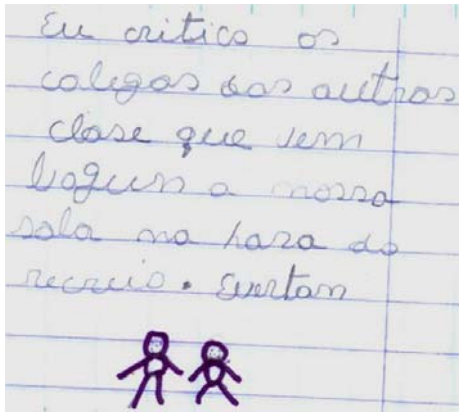 Eu critico os
colegas das outras
clase que vem
bagun a nossa
sala na hara do
recreio. Evertan